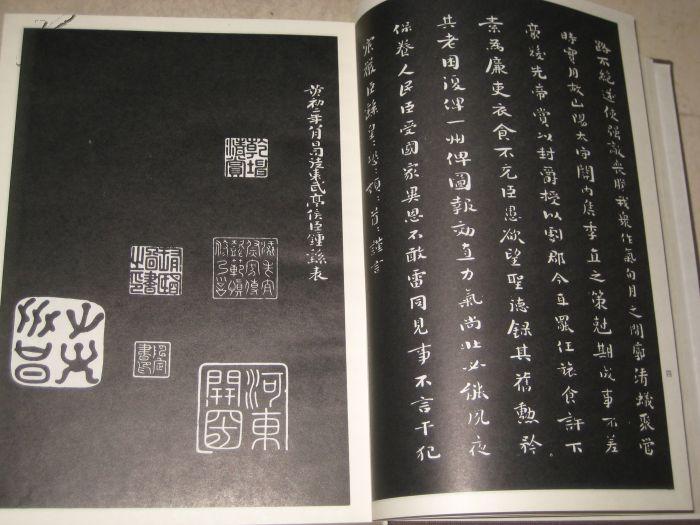 路不絕遂使强敵喪膽我衆作氣旬月之間廓清蟻聚當
時實用故山陽太守關内侯季直之策尅期成事不差
豪髮先帝賞以封爵授以劇郡今直罷任旅食許下
素為廉吏衣食不充臣愚欲望聖德錄其舊勲矜
其老困復俾一州俾圖報効直力氣尚壯必能夙夜
保養人民臣受國家異恩不敢雷同見事不言干犯
宸嚴臣繇皇〻恐〻頓〻首〻謹言
黄初二年八月日司徒東武亭侯臣鍾繇表
河東